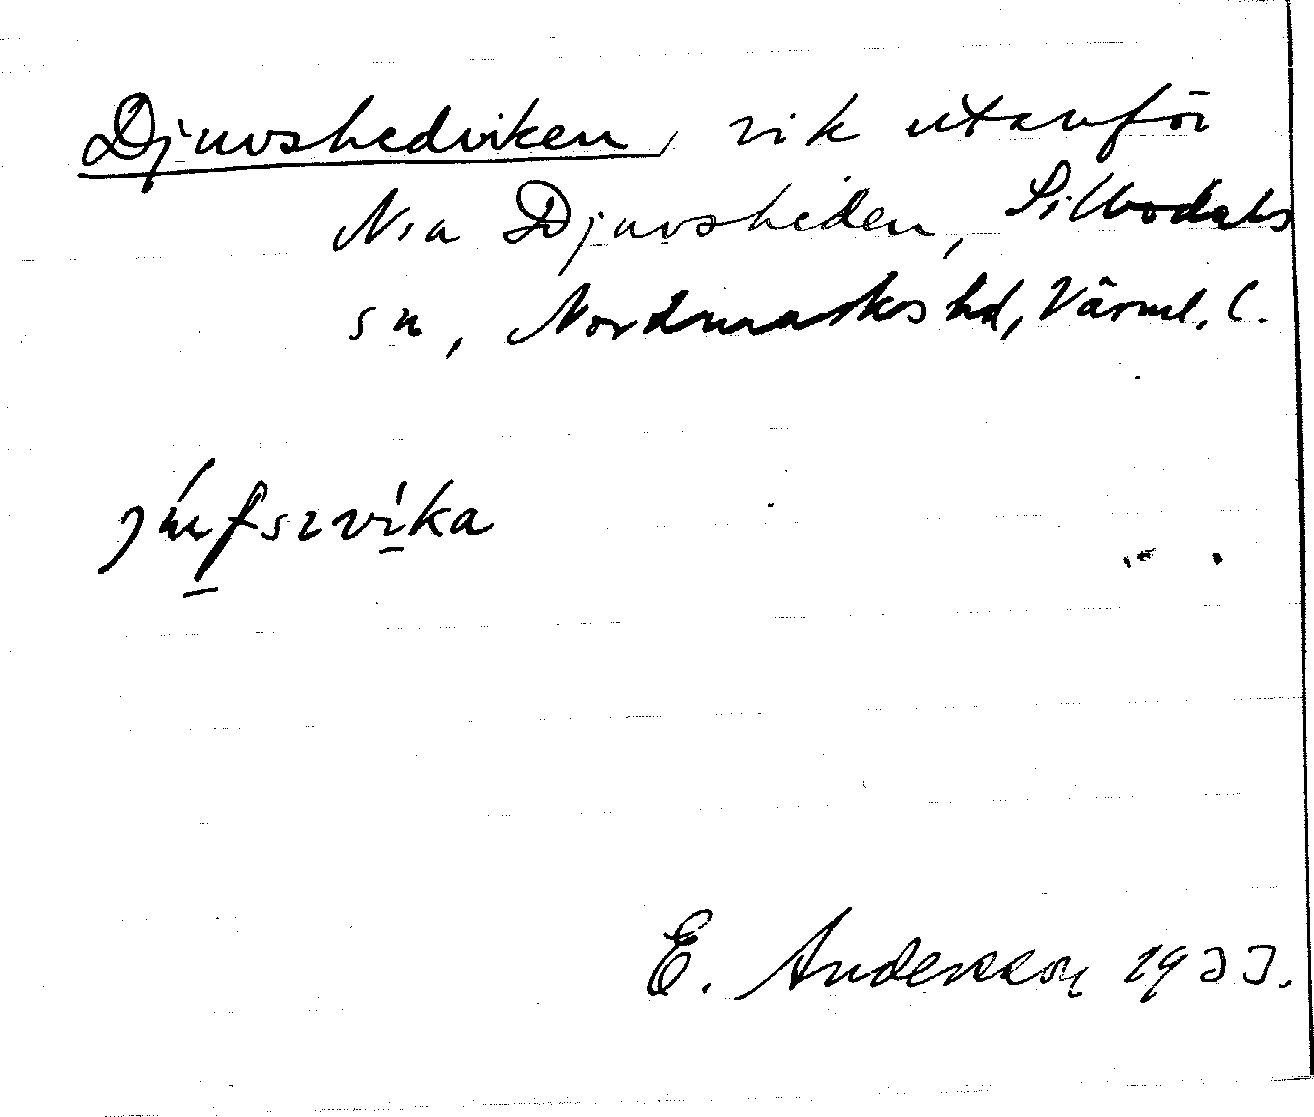 Djuvshedviken, vik utanför
N:a Djuvsheden, Silbodals
sn, Nordmarks hd, Värml. l.
E. Andersson 1933.